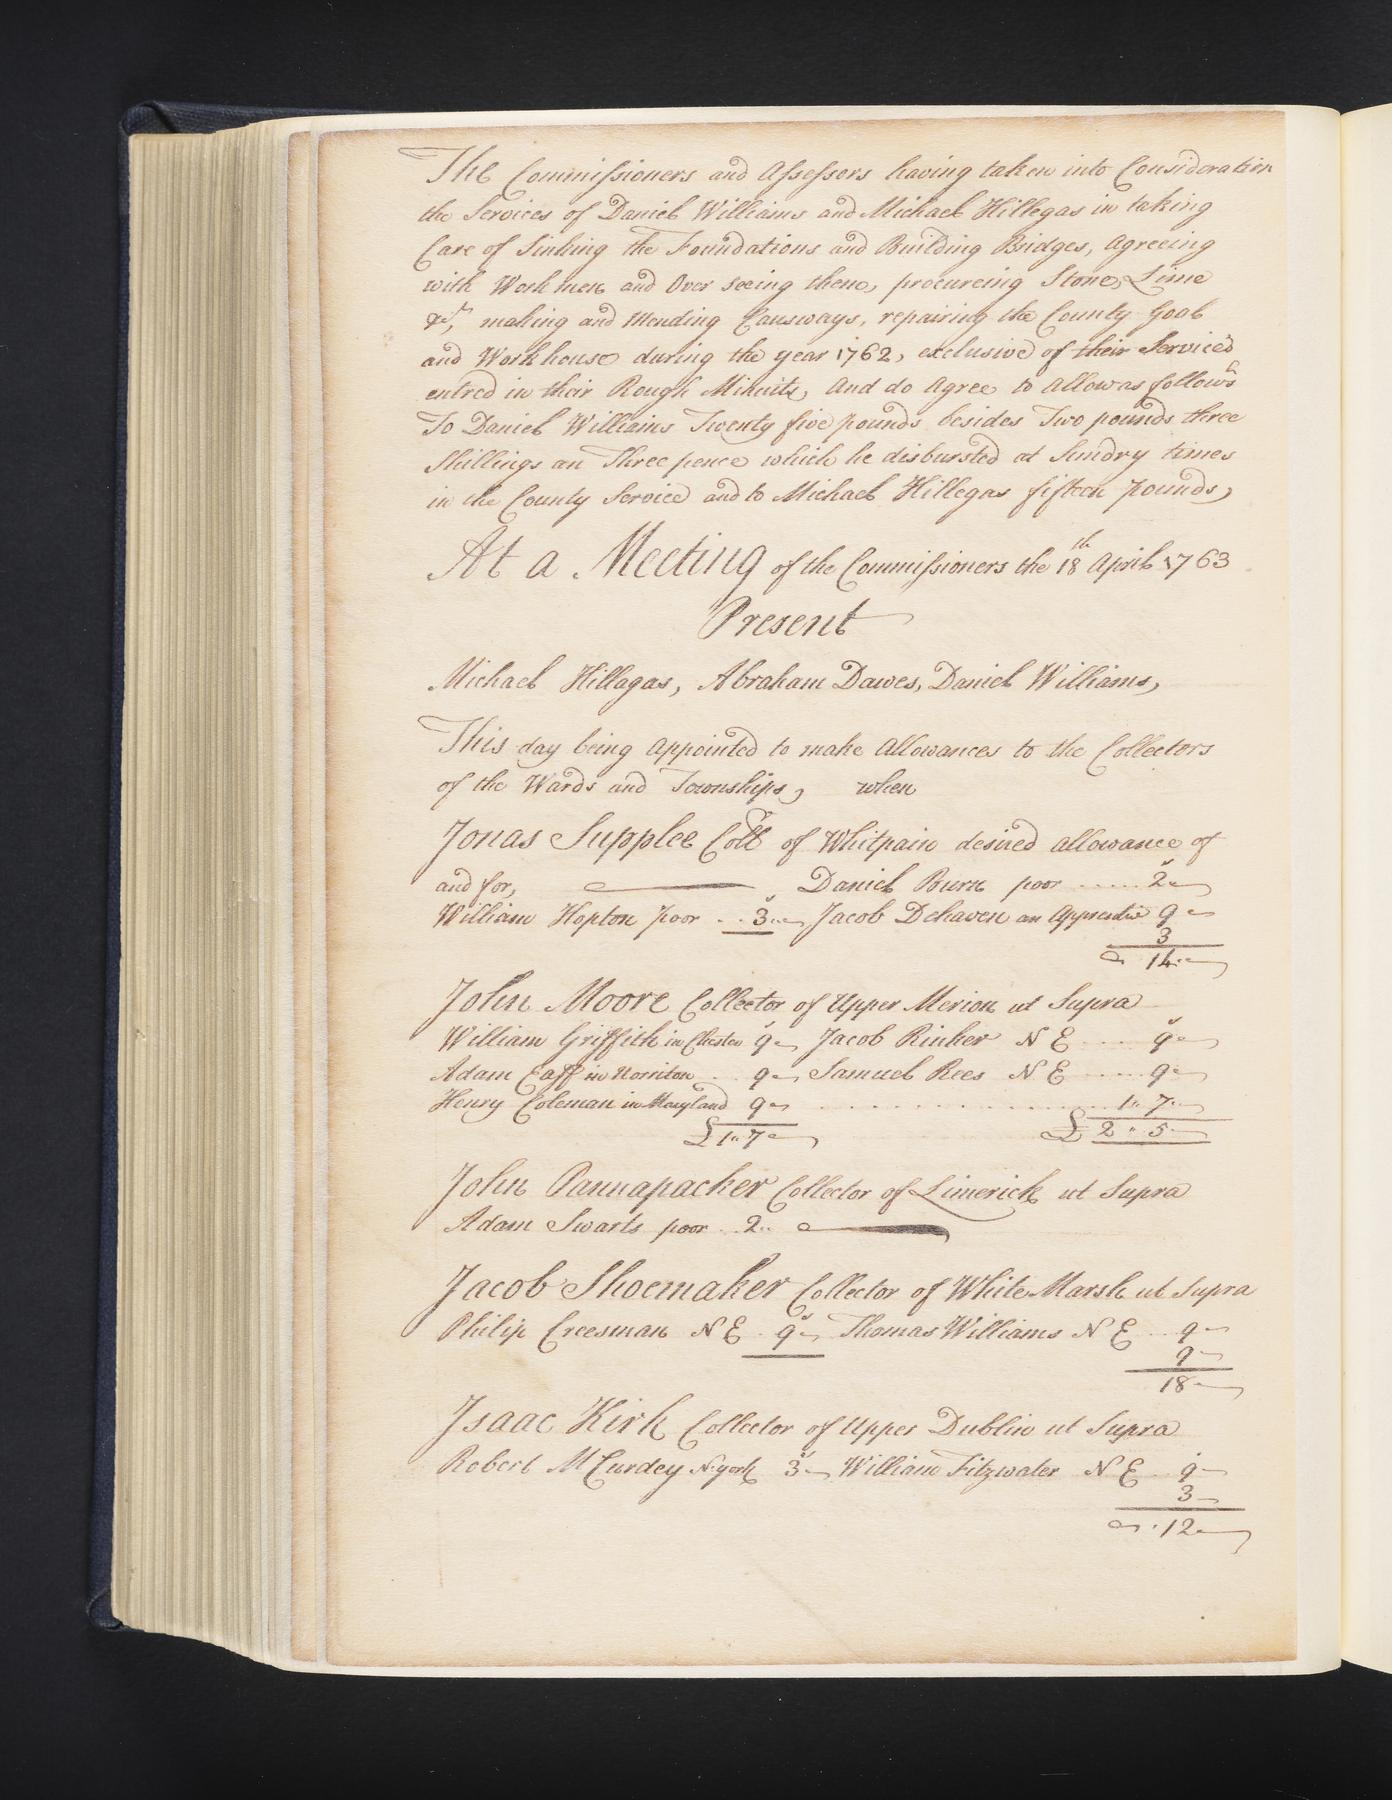 The Commissioners and Assessors having taken into Consideration
the Services of Daniel Williams and Michael Hillegas in taking
Care of Sinking the Foundations and Building Bridges, agreeing
with Workmen and Over seeing them, procureing Stone, Lime
&c, making and Mending Causways, repairing the County Goal
and Workhouse during the year 1762, exclusive of their Services
entred in their Rough Minuits, and do Agree to allow as follows
To Daniel Williams Twenty five pounds besides Two pounds three
Shillings an Three pence which he disbursted at Sundry times
in the County Service and to Michael Hillegas fifteen pounds,
At a Meeting of the Commissioners the 18th April 1763
Present
Michael Hillagas, Abraham Dawes, Daniel Williams,
This day being Appointed to make Allowances to the Collectors
of the Wards and Townships, when
Jonas Supplee Collr of Whitpain desired allowance of
and for, Daniel Burn poor ...... 2
William Hopton poor .. 3 Jacob Dehaven an Apprentice 9
3
14
John Moore Collector of Upper Merion ut Supra
William Griffith in Chester 9 Jacob Rinker N E .... 9
Adam in Norriton .. 9 Samuel Rees N E ..... 9
Henry Coleman in Maryland 9 ............ 1" 7
£1" 7 £ 2 " 5
John Pannapacker Collector of Limerick ut Supra
Adam Swarts poor .. 2
Jacob Shoemaker Collector of White Marsh ut Supra
Philip Creesman N E . 9s Thomas Williams N E .. 9
9
18
Isaac Kirk Collector of Upper Dublin ut Supra
Robert McCurdey N.york 3s William Fitzwater N E .. 9
3
12